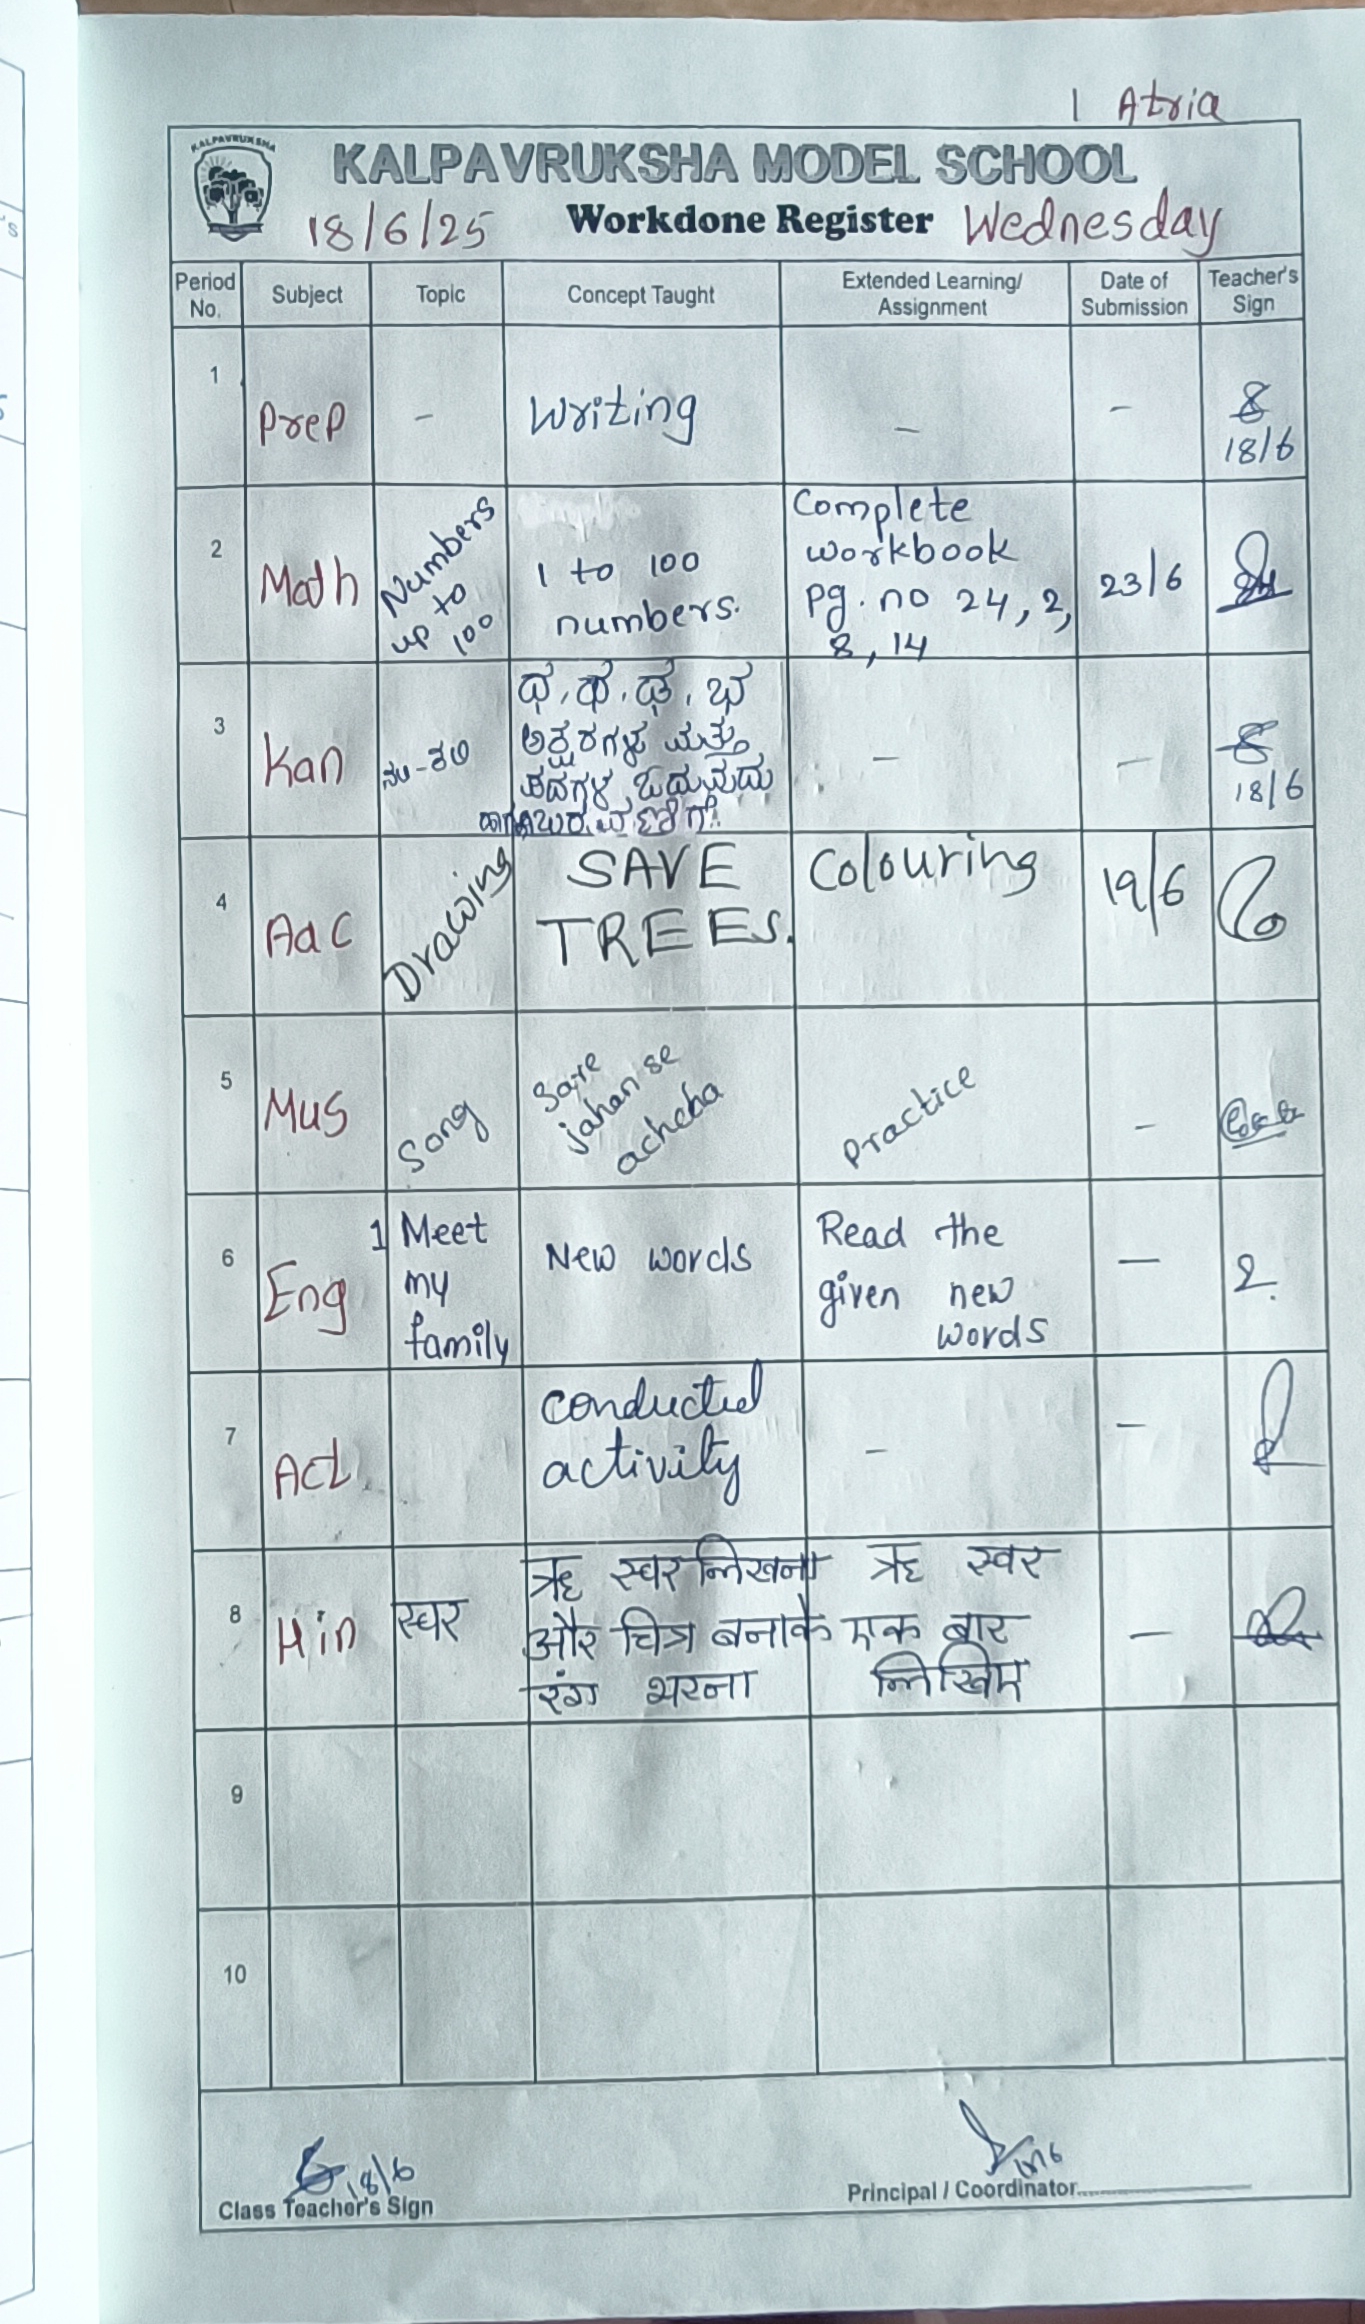 1 Atria
KALPAVRUKSHA
KALPAVRUKSHA MODEL SCHOOL
18/6/25 Workdone Register Wednesday
Period No. Subject Topic Concept Taught Extended Learning/ Assignment Date of Submission Teacher's Sign
1 Prep - Writing - - 18/6
2 Math Numbers up to 100 1 to 100 numbers. Complete workbook pg. no 24, 2, 8, 14 23/6
3 Kan ನಲಿ-ಕಲಿ ಅಕ್ಷರಗಳ ಮತ್ತು ಪದಗಳ ಓದುವುದು - - 18/6
4 Aac Drawing SAVE TREES. Colouring 19/6
5 Mus Song Sare jahan se acheha practice -
6 Eng 1 Meet my family New words Read the given new words -
7 Act conducted activity - -
8 Hin स्वर ऋ स्वर लिखना और चित्र बनाके रंग भरना ऋ स्वर एक बार लिखिए -
9
10
18/6
Class Teacher's Sign
Principal / Coordinator